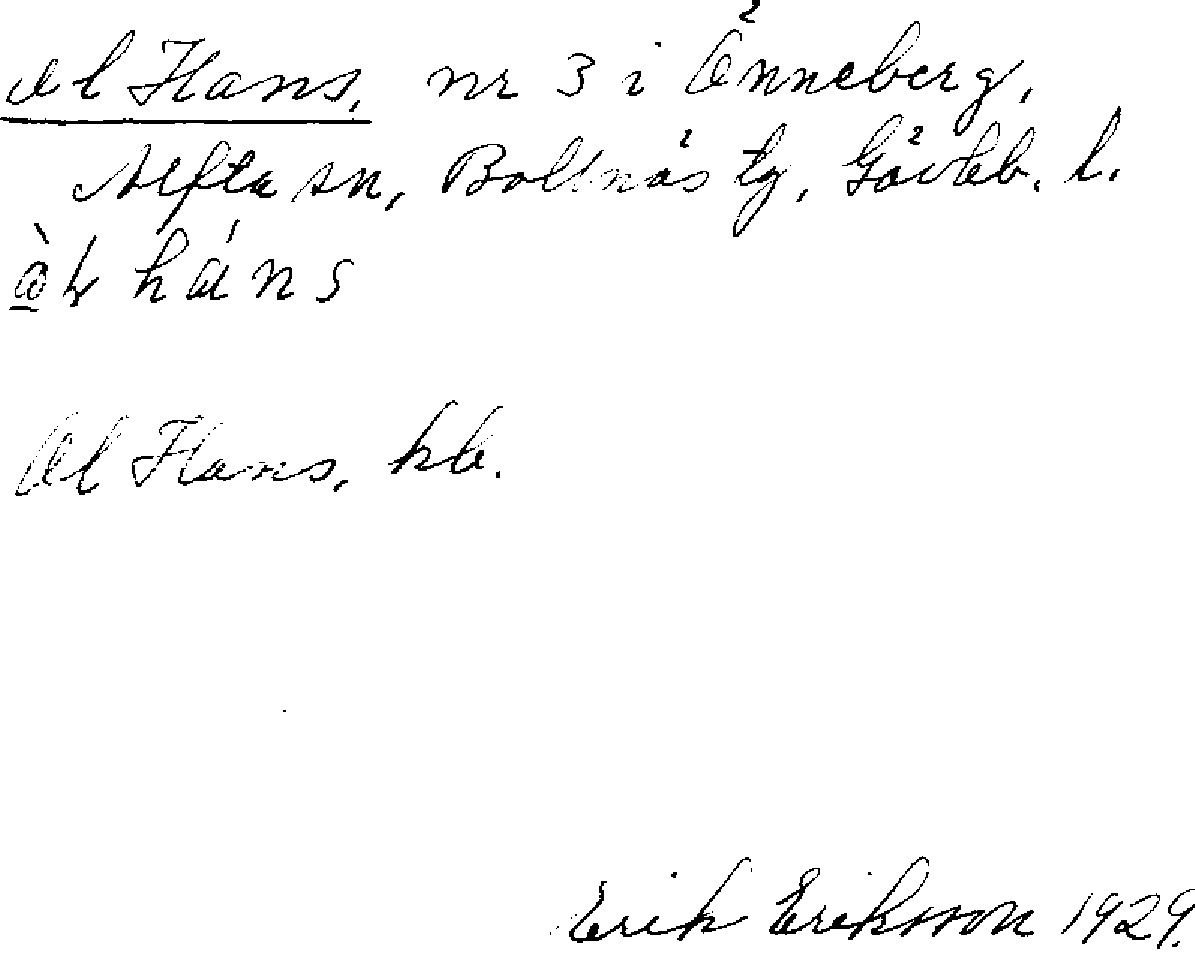 Al Hans, nr 3 i Änneberg,
Alfta sn, Bollnäs tg, Gävleb. l.
háns
Al Hans, kb.
Erik Eriksson 1929.